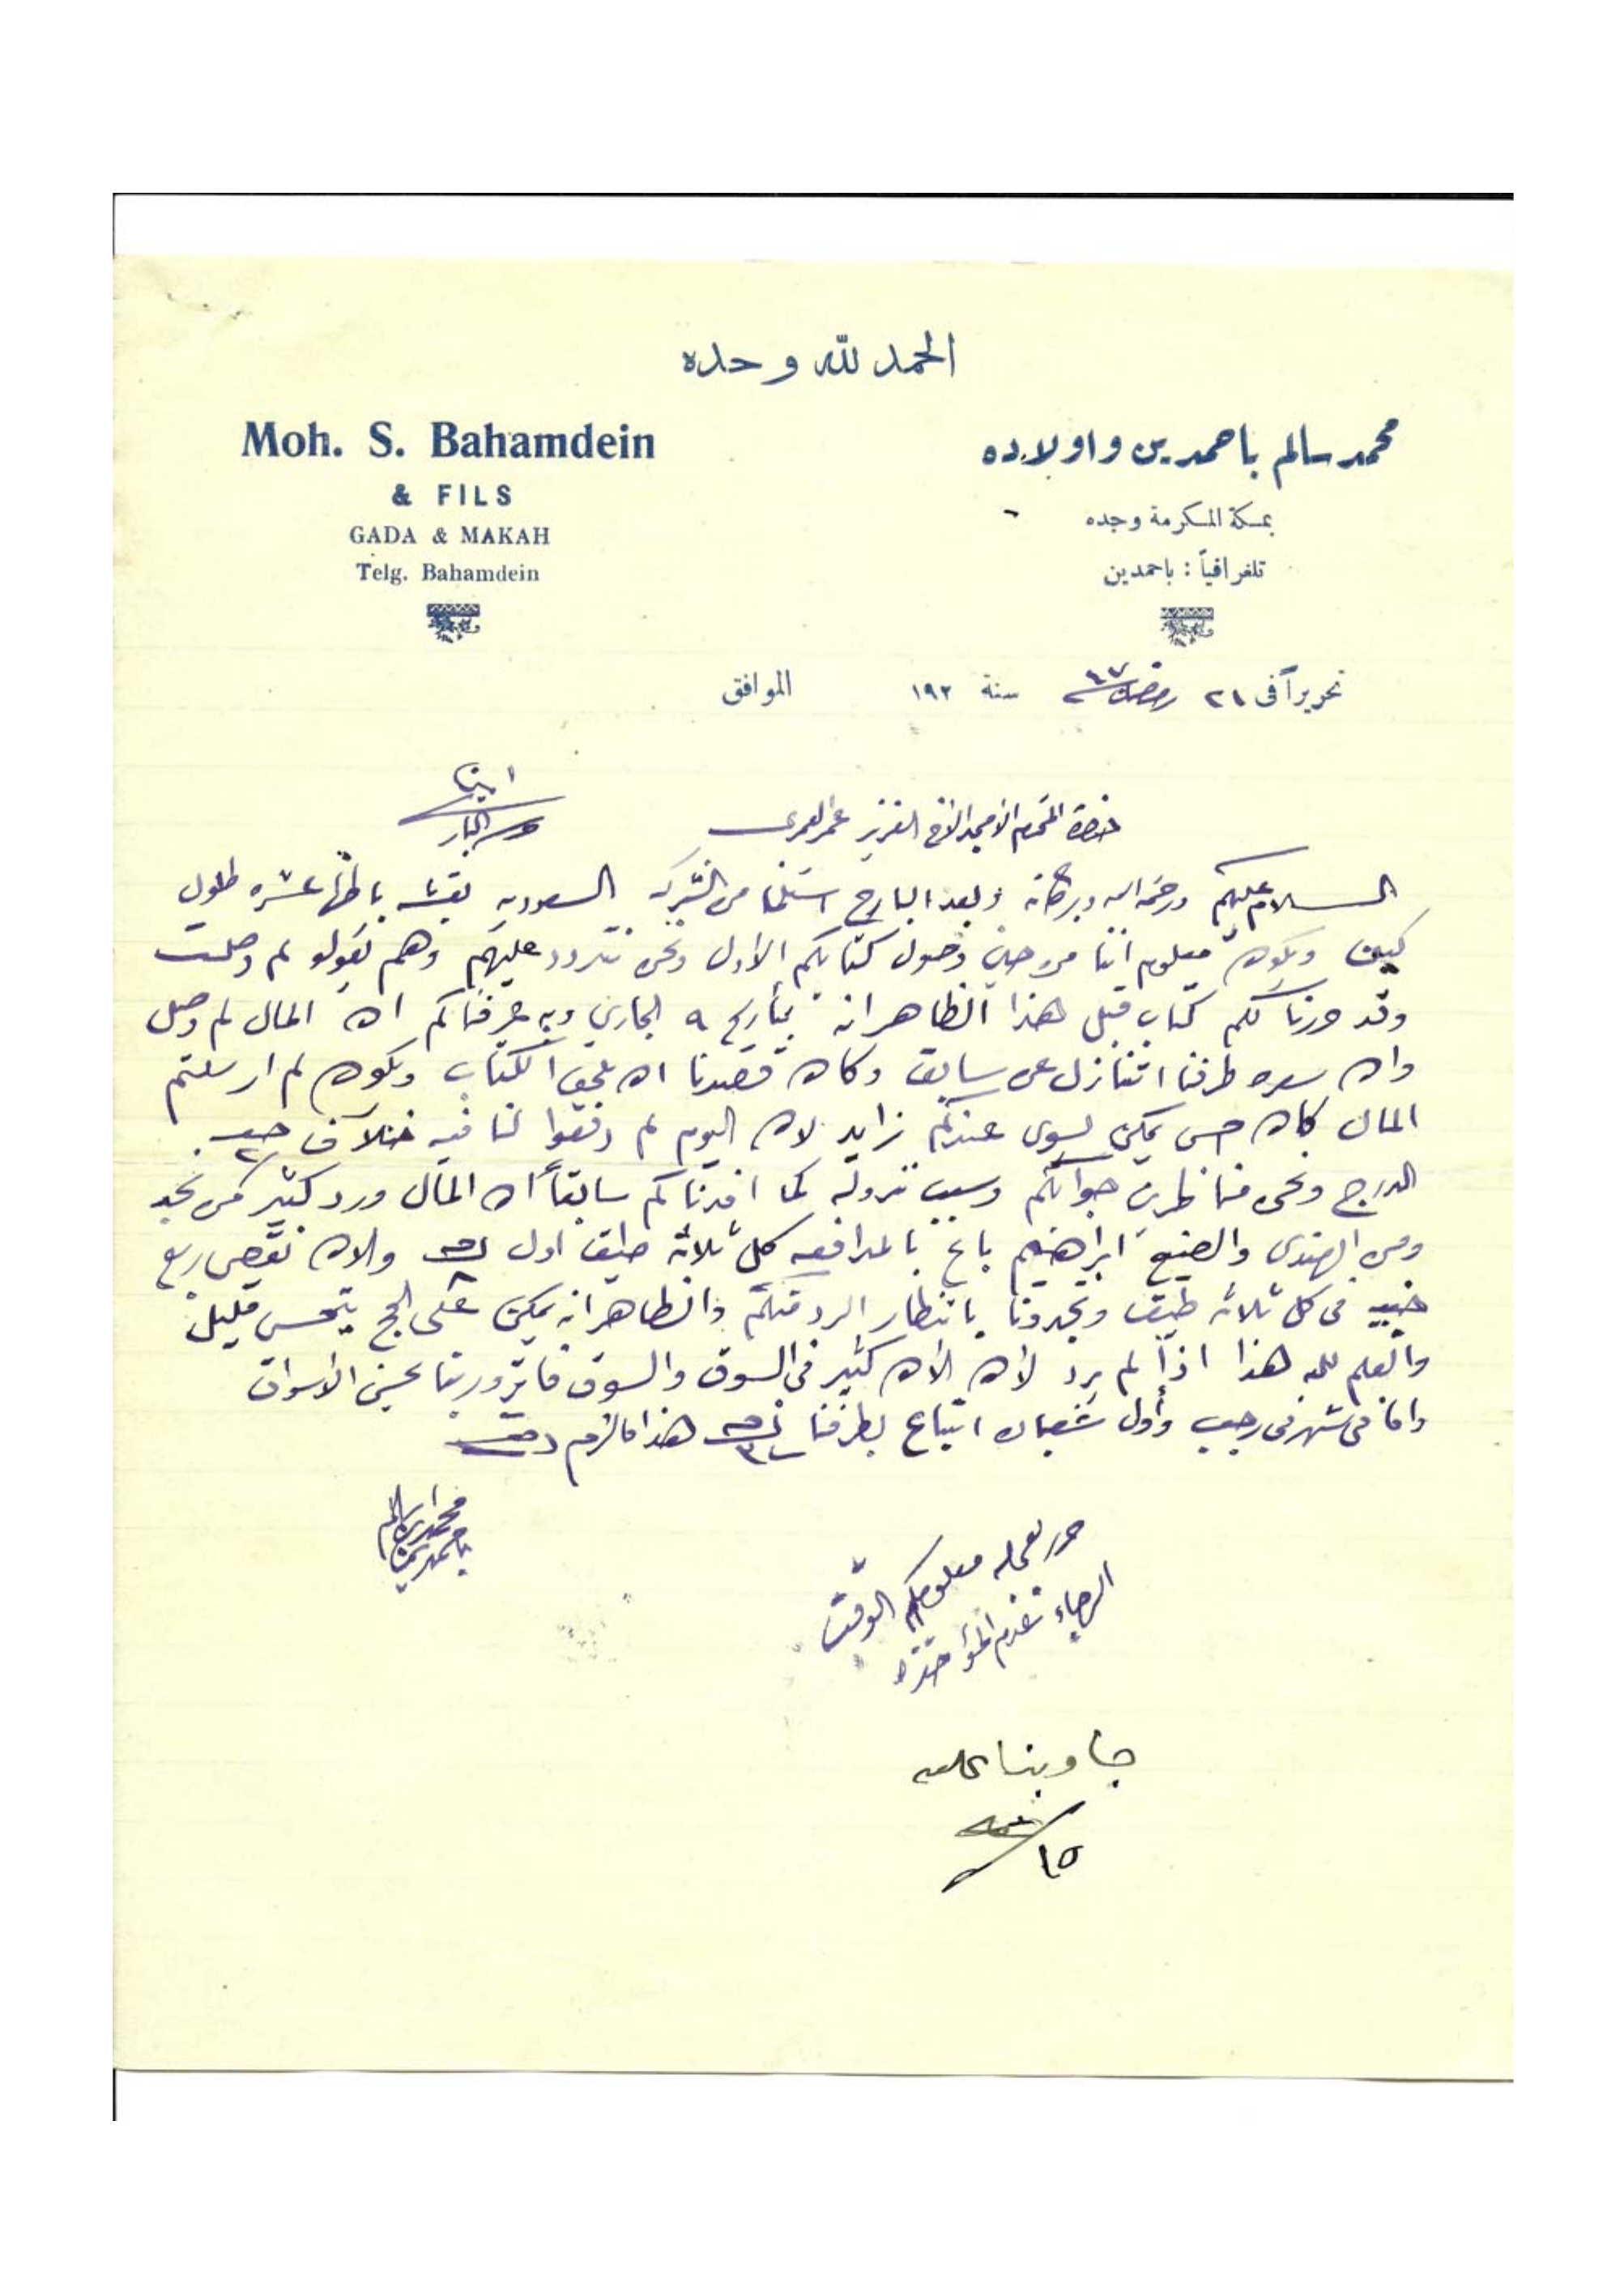 الحمد لله وحده
محمد سالم باحمدين واولاده
بمكة المكرمة وجده
تلغرافياً : باحمدين
Moh. S. Bahamdein
& FILS
GADA & MAKAH
Telg. Bahamdein
تحريراً فى ٢١ رمضان ٤٧ سنة ١٩٢ الموافق
حضرة المحترم الأمجد الأخ العزيز عمر العمري
السلام عليكم ورحمة الله وبركاته وبعد البارح استلمنا من الشركة السعودية بقشه باطنها عشره طلول
كيف ويكون معلوم اننا من حين وصول كتابكم الأول ونحن نتردد عليهم وهم يقولو لم وصلت
وقد حررنا لكم كتاب قبل هذا الظاهر انه بتاريخ ٩ الجاري وبه عرفناكم ان المال لم وصل
وان سعره طرفنا اتنازل عن سابق وكان قصدنا ان يلحق الكتاب ويكون لم ارسلتم
المال كان حس يمكن يسوى عندكم زايد لان اليوم لم دفعوا لنا فيه خلاف
الدرج ونحن مناظرين جوابكم وسبب نزوله كما افدناكم سابقاً ان المال ورد كثير من نجد
ومن الهندى والصنيع ابراهيم باع بالمدافعه كل ثلاثة طيق اول والان نقص ربع
جنيه فى كل ثلاثه طيق وتجدونا بانتظار الرد منكم والظاهر انه يمكن على الحج يتحسن قليل
والعلم لله هذا اذا لم يرد لأن الأن كثير فى السوق والسوق فاتر وربنا يحسن الأسواق
واما فى شهر فى رجب وأول شعبان اتباع بطرفنا هذا مالزم ودمتم
محمد بن سالم
باحمدين
حرر بعجله معلومكم الوقت
الرجاء عدم المؤاخذه
جاوبنا عليه
١٥